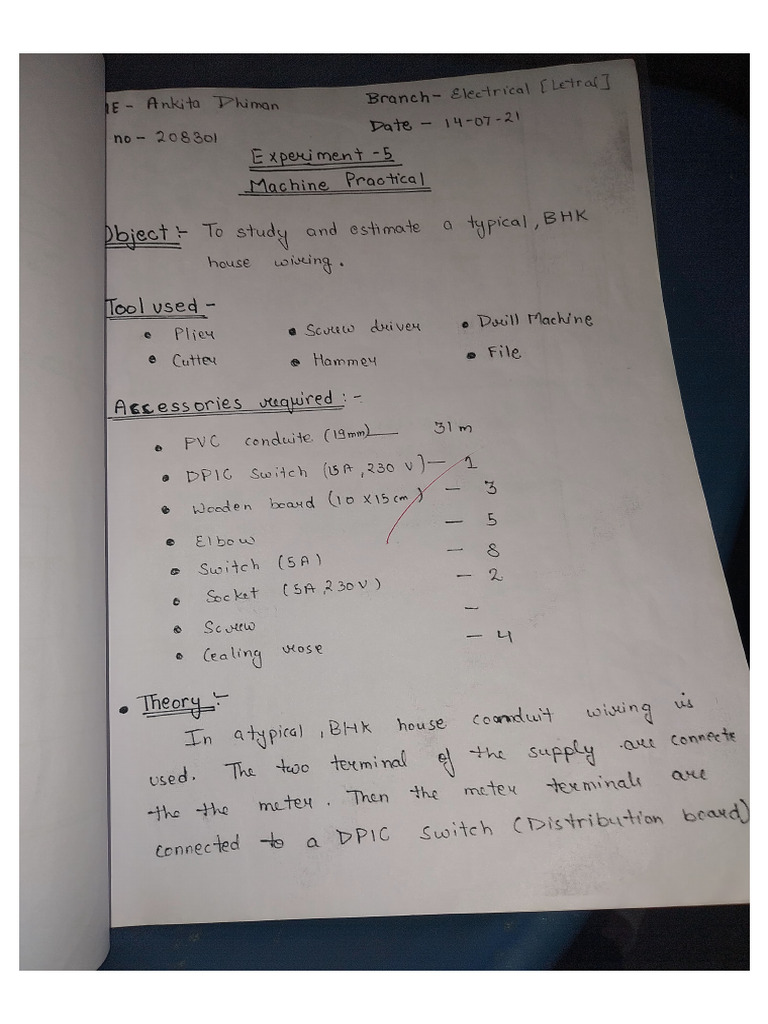 IE - Ankita Dhiman Branch - Electrical [Letral]
no - 208301 Date - 14-07-21
Experiment - 5
Machine Practical
Object :- To study and estimate a typical, BHK
house wiring.
Tool used -
• Plier • Screw driver • Drill Machine
• Cutter • Hammer • File
Accessories required :-
• PVC conduite (19mm) — 31 m
• DPIC Switch (15A, 230 V) — 1
• Wooden board (10 X 15 cm) — 3
• Elbow — 5
• Switch (5A) — 8
• Socket (5A, 230V) — 2
• Screw —
• Cealing rose — 4
• Theory :-
In a typical, BHK house conduit wiring is
used. The two terminal of the supply are connecte
the the meter. Then the meter terminals are
connected to a DPIC Switch (Distribution board)